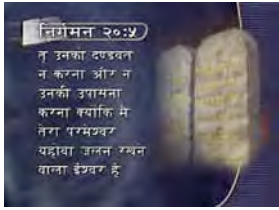 निर्गमन २०:५
तू उनको दण्डवत
न करना और न
उनकी उपासना
करना क्योंकि मै
तेरा परमेश्वर
यहोवा जलन रखने
वाला ईश्वर है